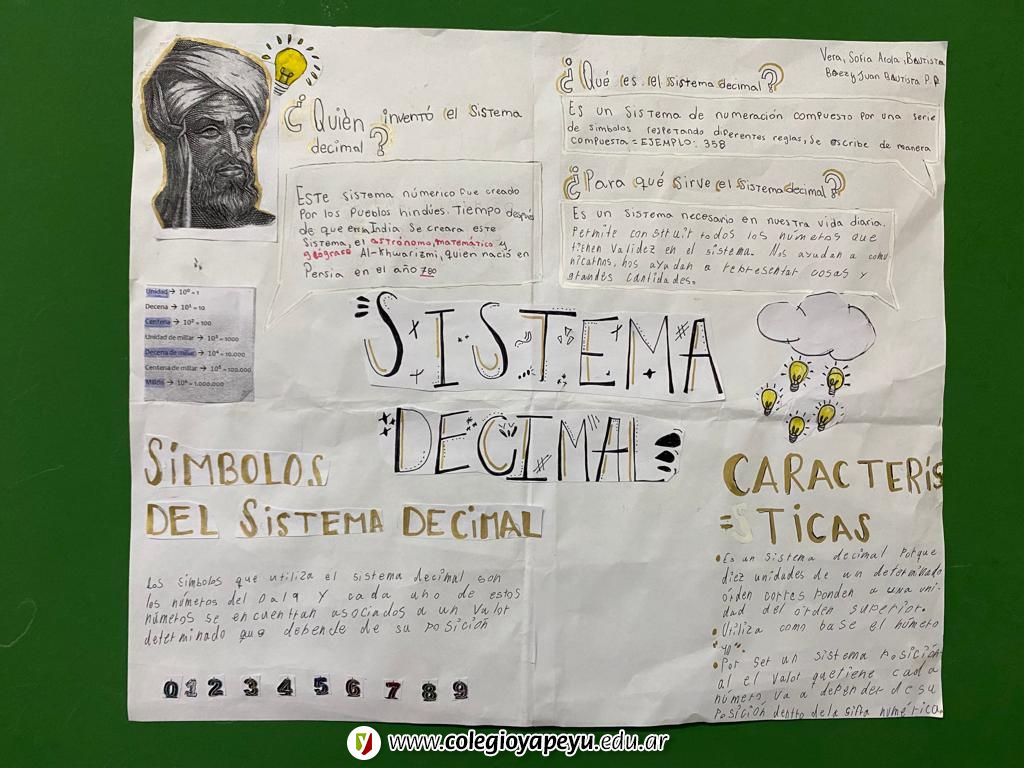 Vera, Sofia Arola, Bautista
Baez y Juan Bautista P.P
¿Quién inventó el Sistema
decimal?
Este sistema númerico fue creado
Por los Pueblos hindúes. Tiempo después
de que en la India se creara este
Sistema, el astrónomo, matemático y
geógrafo Al-Khwarizmi, quien nació en
Persia en el año 780
¿Qué es el Sistema decimal?
Es un sistema de numeración compuesto por una serie
de simbolos respetando diferentes reglas, Se escribe de manera
compuesta = EJEMPLO: 358
¿Para qué sirve el Sistema decimal?
Es un sistema necesario en nuestra vida diaria.
Permite construir todos los números que
tienen validez en el sistema. Nos ayudan a comu-
nicarnos, nos ayudan a representar cosas y
grandes cantidades.
Unidad → 10⁰ = 1
Decena → 10¹ = 10
Centena → 10² = 100
Unidad de millar → 10³ = 1000
Decena de millar → 10⁴ = 10.000
Centena de millar → 10⁵ = 100.000
Millón → 10⁶ = 1.000.000
SISTEMA
DECIMAL
SÍMBOLOS
DEL SISTEMA DECIMAL
Los simbolos que utiliza el sistema decimal son
los números del 0 al 9 y cada uno de estos
números se encuentran asociados a un valor
determinado que depende de su posición
0 1 2 3 4 5 6 7 8 9
CARACTERÍS
=STICAS
• Es un sistema decimal Porque
diez unidades de un determinado
orden corresponden a una uni-
dad del orden superior.
• Utiliza como base el número
"10".
• Por ser un sistema posición
al el valor que tiene cada
número, va a depender de su
posición dentro de la sifra numérica.
www.colegioyapeyu.edu.ar